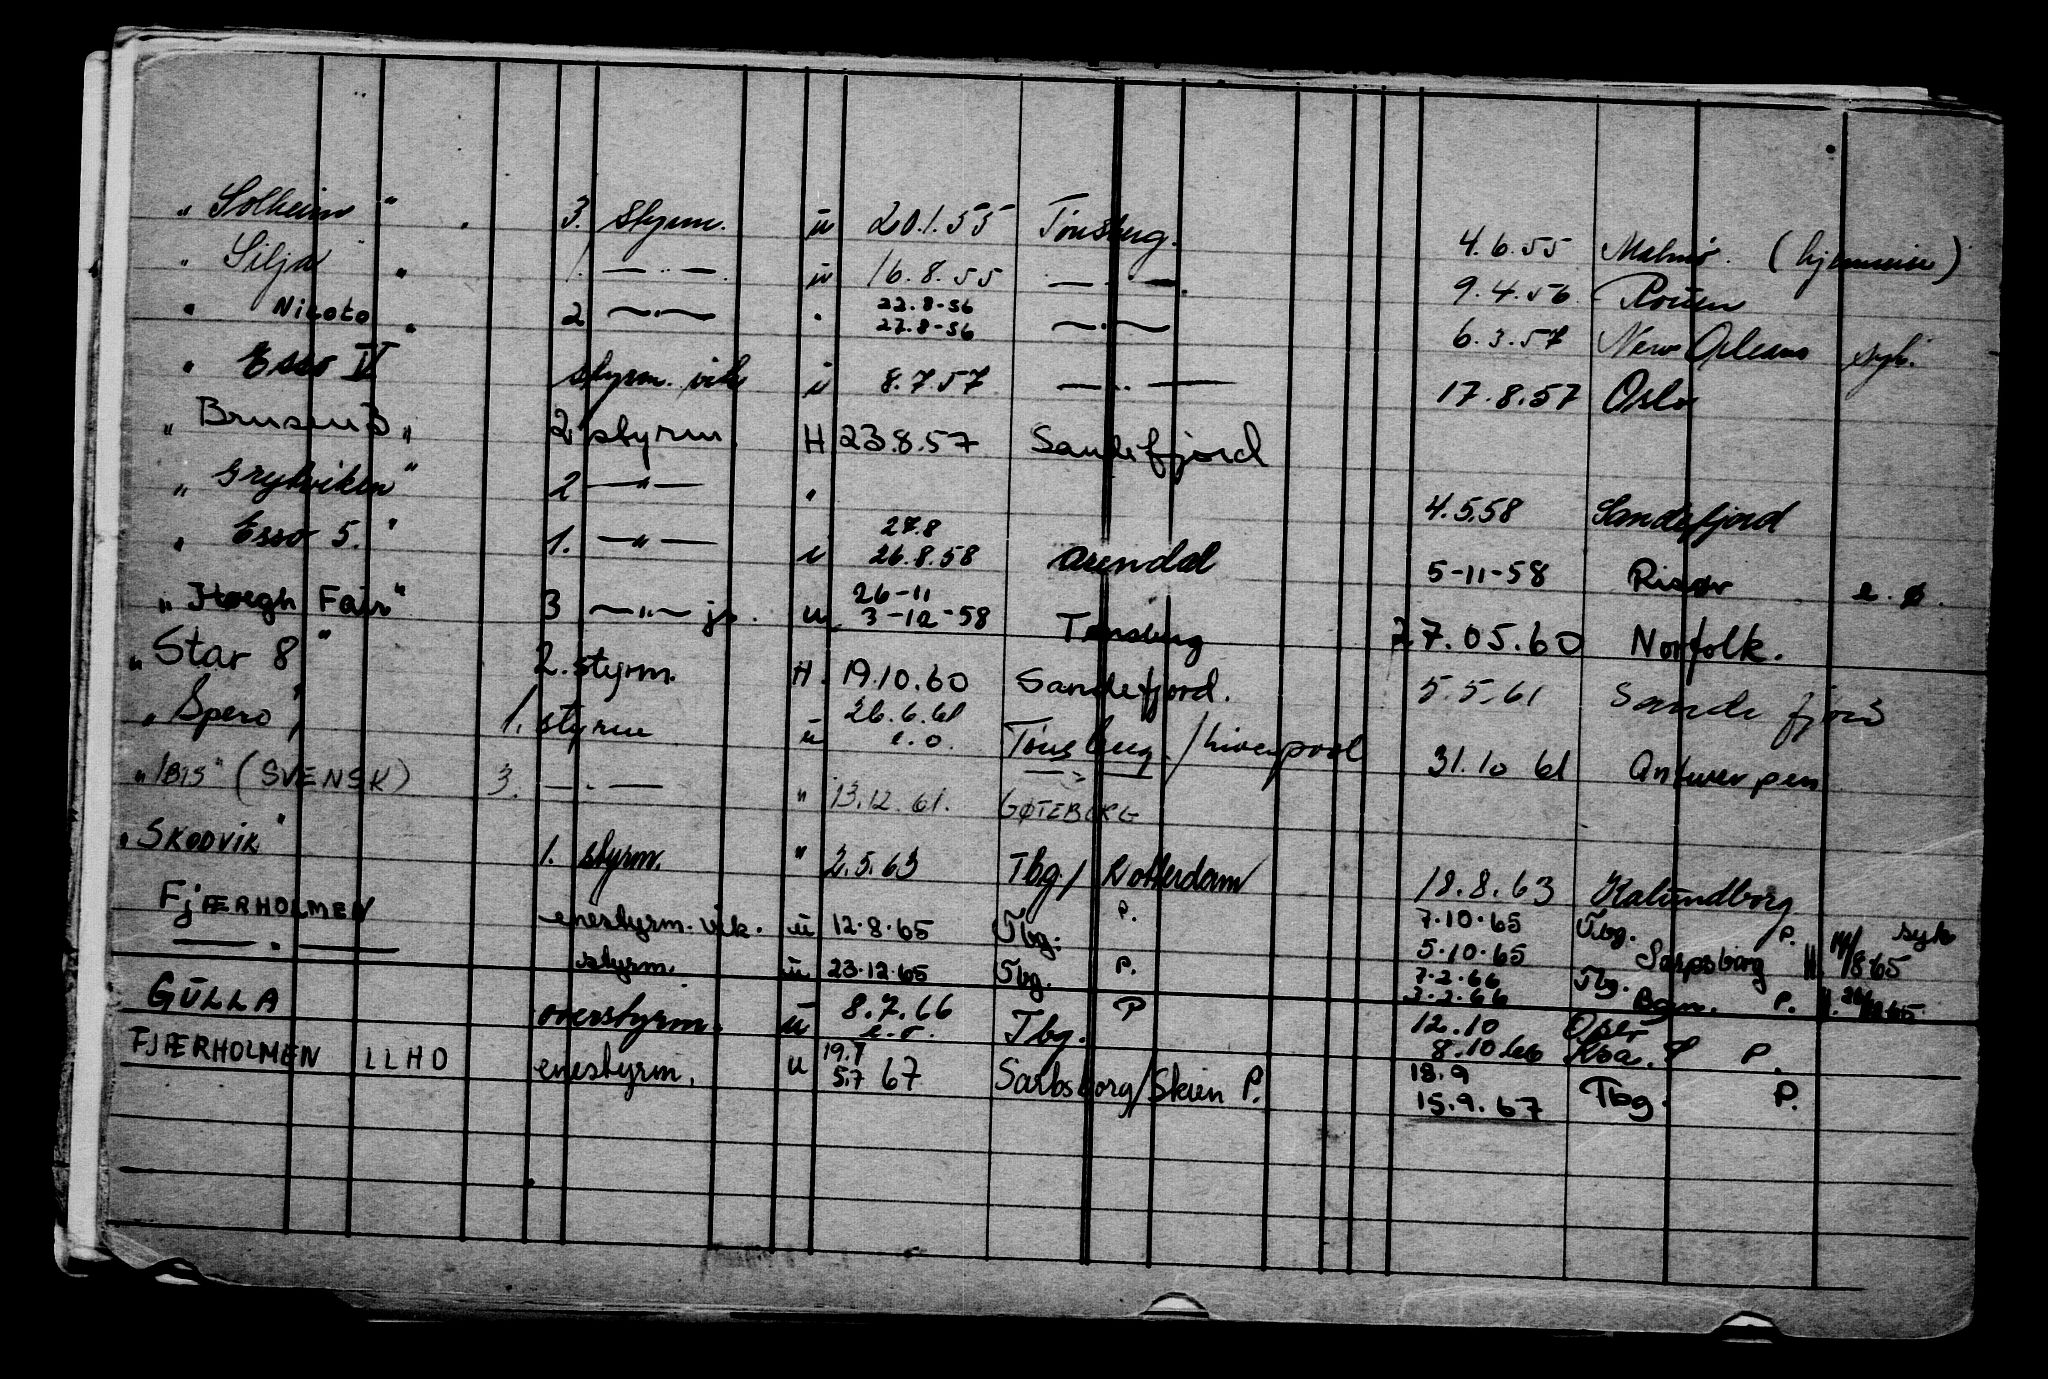 " Solheim " 3. styrm. ü 20.1.55 Tønsberg. 4.6.55 Malmø. (hjemreise)
" Silja " 1. — " — ü 16.8.55 — " — 9.4.56 Rouen
" Nicoto " 2 — " — " 22.8-56 27.8-56 — " — 6.3.57 New Orleans syk.
" Esso V styrm. vik ü 8.7.57 — " — 17.8.57 Oslo
" Brusen 3 " 2. styrm. H 23.8.57 Sandefjord
" Grytviken " 2 — " — " 4.5.58 Sandefjord
" Esso 5. " 1. — " — u 27.8 26.8.58 Arendal 5-11-58 Risør e.ø.
" Høegh Fair " 3 — " — jr. u 26-11 3-12-58 Tønsberg 27.05.60 Norfolk.
" Star 8 " 2. styrm. H. 19.10.60 Sandefjord. 5.5.61 Sandefjord
" Spero " 1. styrm ü 26.6.61 e.o. Tønsberg / Liverpool 31.10 61 Antwerpen
" IBIS " (SVENSK) 3. — " — " 13.12.61. — " — GØTEBORG
" SKODVIK " 1. styrm. " 2.5.63 Tbg / Rotterdam 18.8.63 Kalundborg
FJÆRHOLMEN enestyrm. vik. ü 12.8.65 Tbg. P. 7.10.65 Tbg. P. syk
5.10.65 Sarpsborg
— " — styrm. ü 23.12.65 Tbg. P. 7.2.66 Tbg.
3.2.66 P.
GÜLLA overstyrm. ü 8.7.66 e.o. Tbg. P 12.10
8.10.66 P.
FJÆRHOLMEN LLHO enestyrm. u 19.7 5.7 67 Sarbsborg/Skien P. 18.9 Tbg. P.
15.9.67